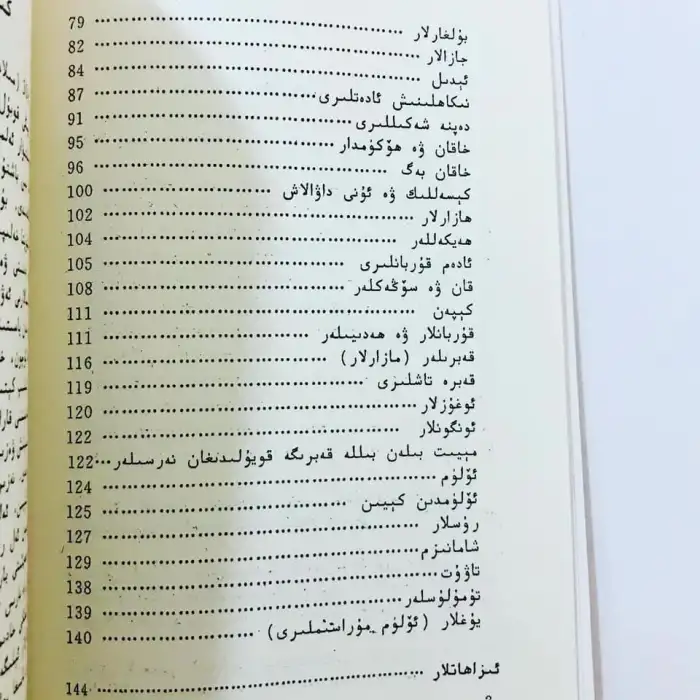 بۇلغارلار ........ 79
جازالار ........ 82
ئېدىل ........ 84
نىكاھلىنىش ئادەتلىرى ........ 87
دەپنە شەكىللىرى ........ 91
خاقان ۋە ھۆكۈمدار ........ 95
خاقان بەگ ........ 96
كېسەللىك ۋە ئۇنى داۋالاش ........ 100
ھازارلار ........ 102
ھەيكەللەر ........ 104
ئادەم قۇربانلىرى ........ 105
قان ۋە سۆڭەكلەر ........ 108
كېپەن ........ 111
قۇربانلار ۋە ھەدىيىلەر ........ 111
قەبرىلەر (مازارلار) ........ 116
قەبرە تاشلىرى ........ 119
ئوغۇزلار ........ 120
ئونگونلار ........ 122
مېيىت بىلەن بىللە قەبرىگە قويۇلىدىغان نەرسىلەر ... 122
ئۆلۈم ........ 124
ئۆلۈمدىن كېيىن ........ 125
رۇسلار ........ 127
شامانىزم ........ 129
تاۋۇت ........ 138
تۈمۈلۈسلەر ........ 139
يۇغلار (ئۆلۈم مۇراسىملىرى) ........ 140
ئىزاھاتلار ........ 144